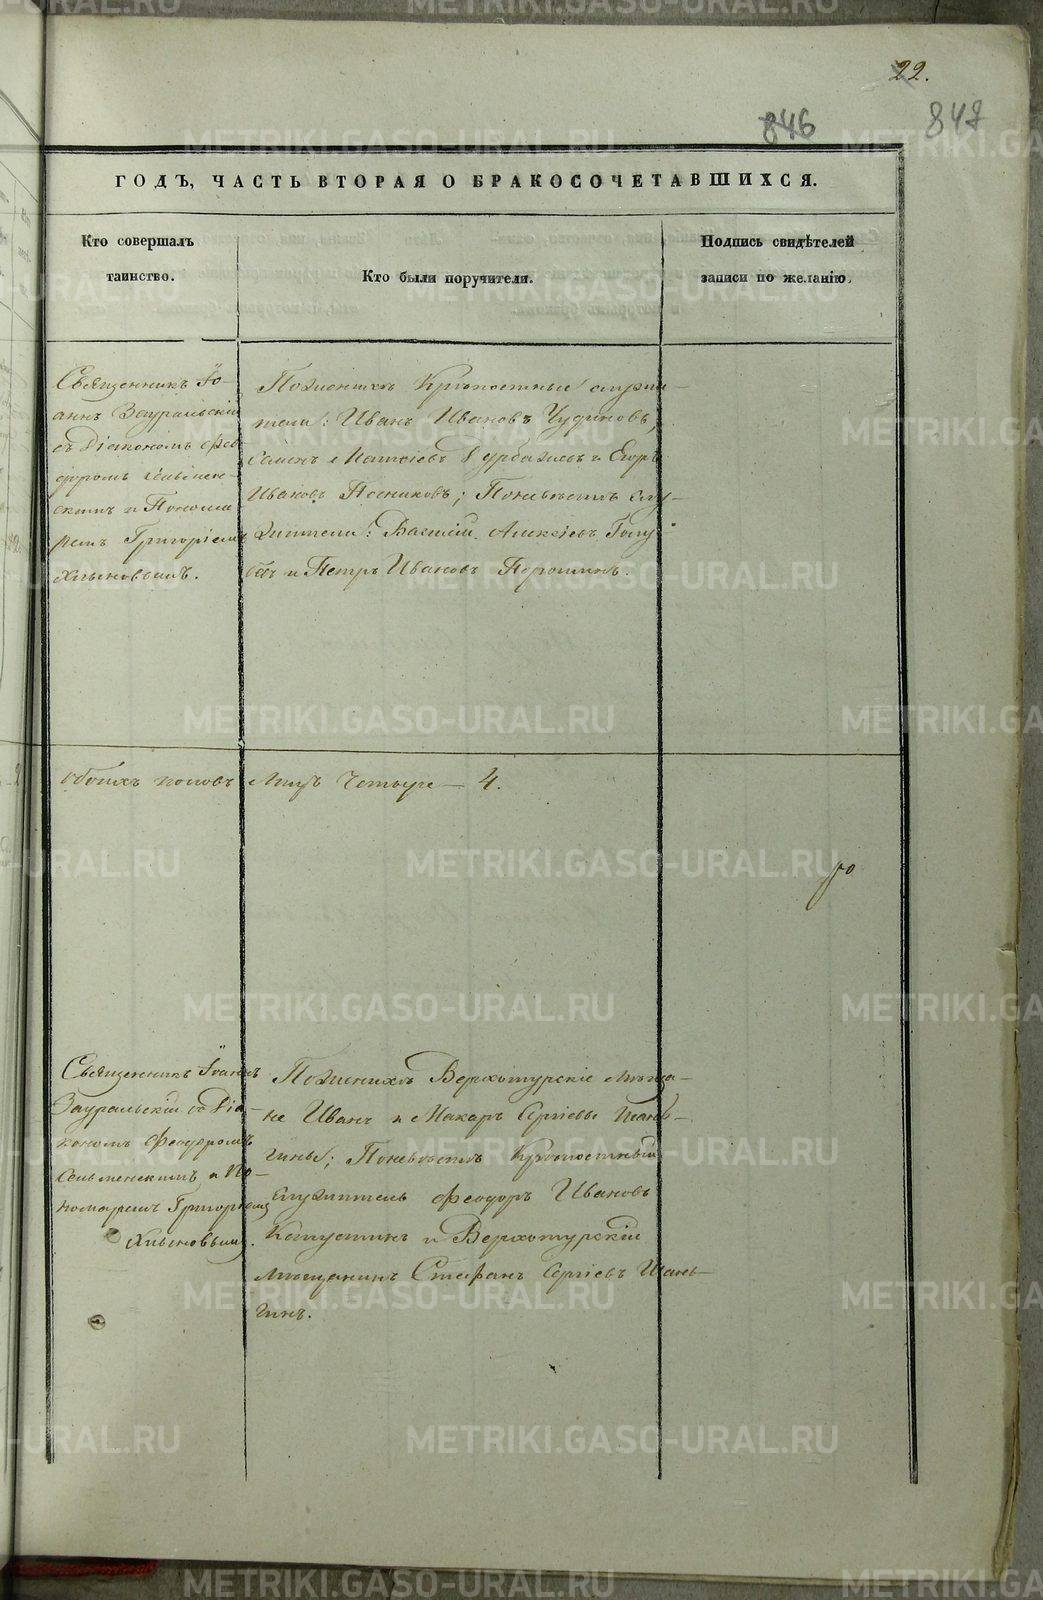 22.
846 847
ГОДЪ, ЧАСТЬ ВТОРАЯ О БРАКОСОЧЕТАВШИХСЯ.
Кто совершалъ
таинство.
Кто были поручители.
Подпись свидѣтелей
записи по желанію.
Священникъ Іо-
аннъ Зауральскій
съ Діакономъ Фео-
доромъ Сельмен-
скимъ и Понома-
ремъ Григоріемъ
Хлыновымъ.
По женихѣ Крѣпостные служи-
тели: Иванъ Ивановъ Чудиновъ,
Семенъ Матвѣевъ и Егоръ
Ивановъ Посниковъ; По невѣстѣ слу-
жители: Василій Алексѣевъ Голу-
бевъ и Петръ Ивановъ Порошинъ.
обоихъ половъ Лицъ Четыре — 4.
Священникъ Іоаннъ
Зауральскій съ Діа-
кономъ Феодоромъ
Сельменскимъ и По-
номаремъ Григоріемъ
Хлыновымъ.
По женихѣ Верхотурскіе мѣща-
не Иванъ и Макаръ Сергіевы Шань-
гины; По невѣстѣ Крѣпостный
служитель Феодоръ Ивановъ
Капустинъ и Верхотурскій
мѣщанинъ Стефанъ Сергіевъ Шань-
гинъ.
METRIKI.GASO-URAL.RU